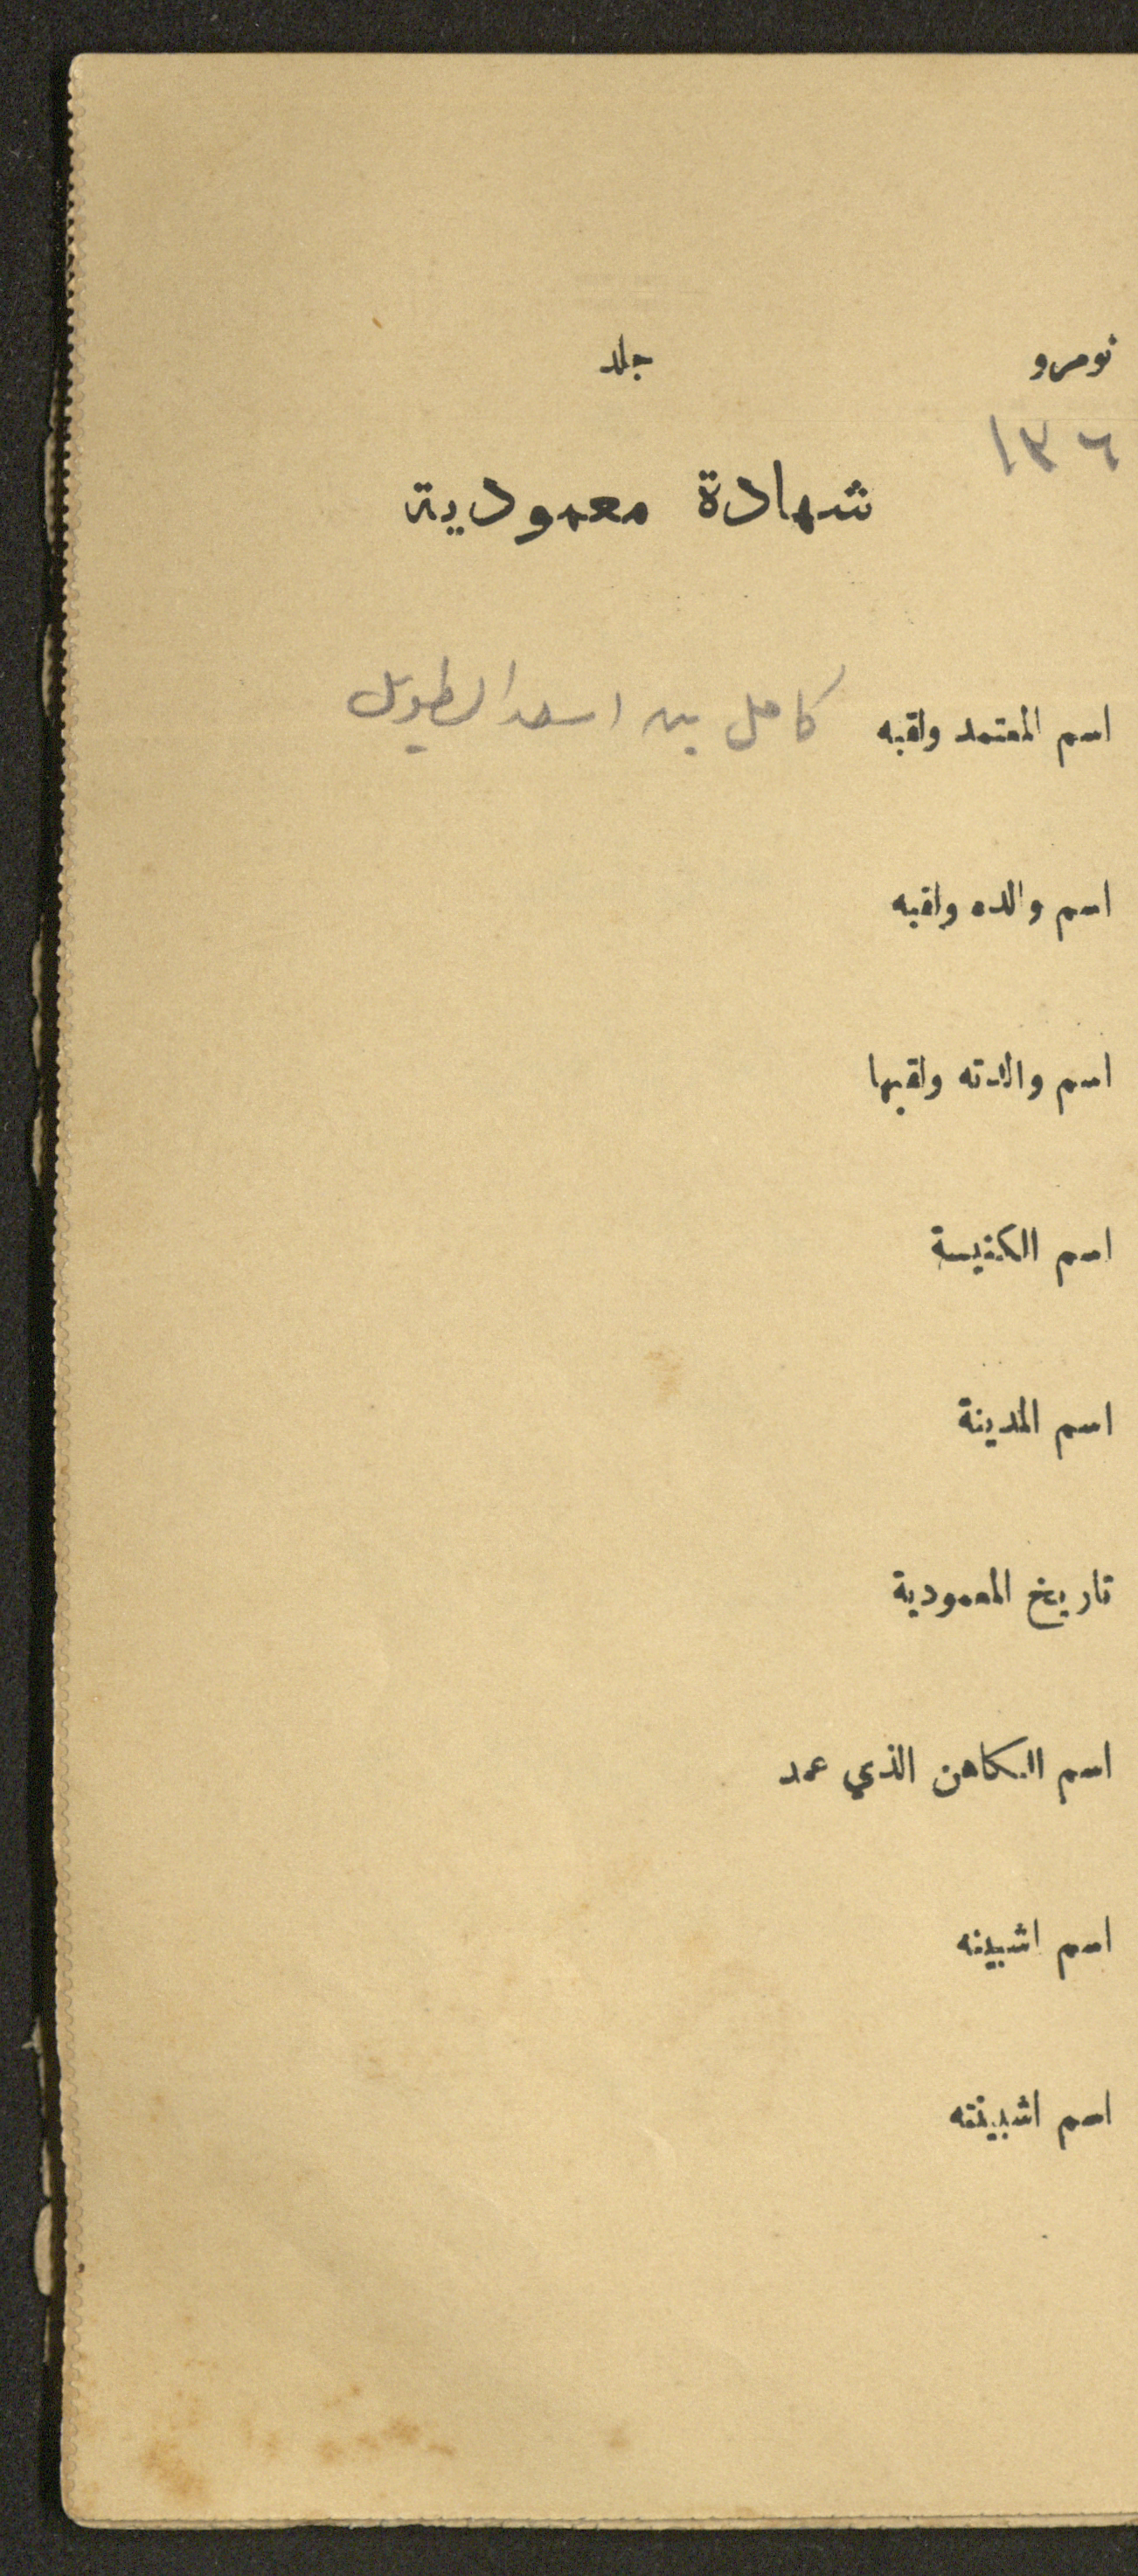 نومرو جلد
١٣٦
شهادة معمودية
اسم المعتمد ولقبه كامل بن اسعد الطويل
اسم والده ولقبه
اسم والدته ولقبها
اسم الكنيسة
اسم المدينة
تاريخ المعمودية
اسم الكاهن الذي عمد
اسم اشبينه
اسم اشبينته